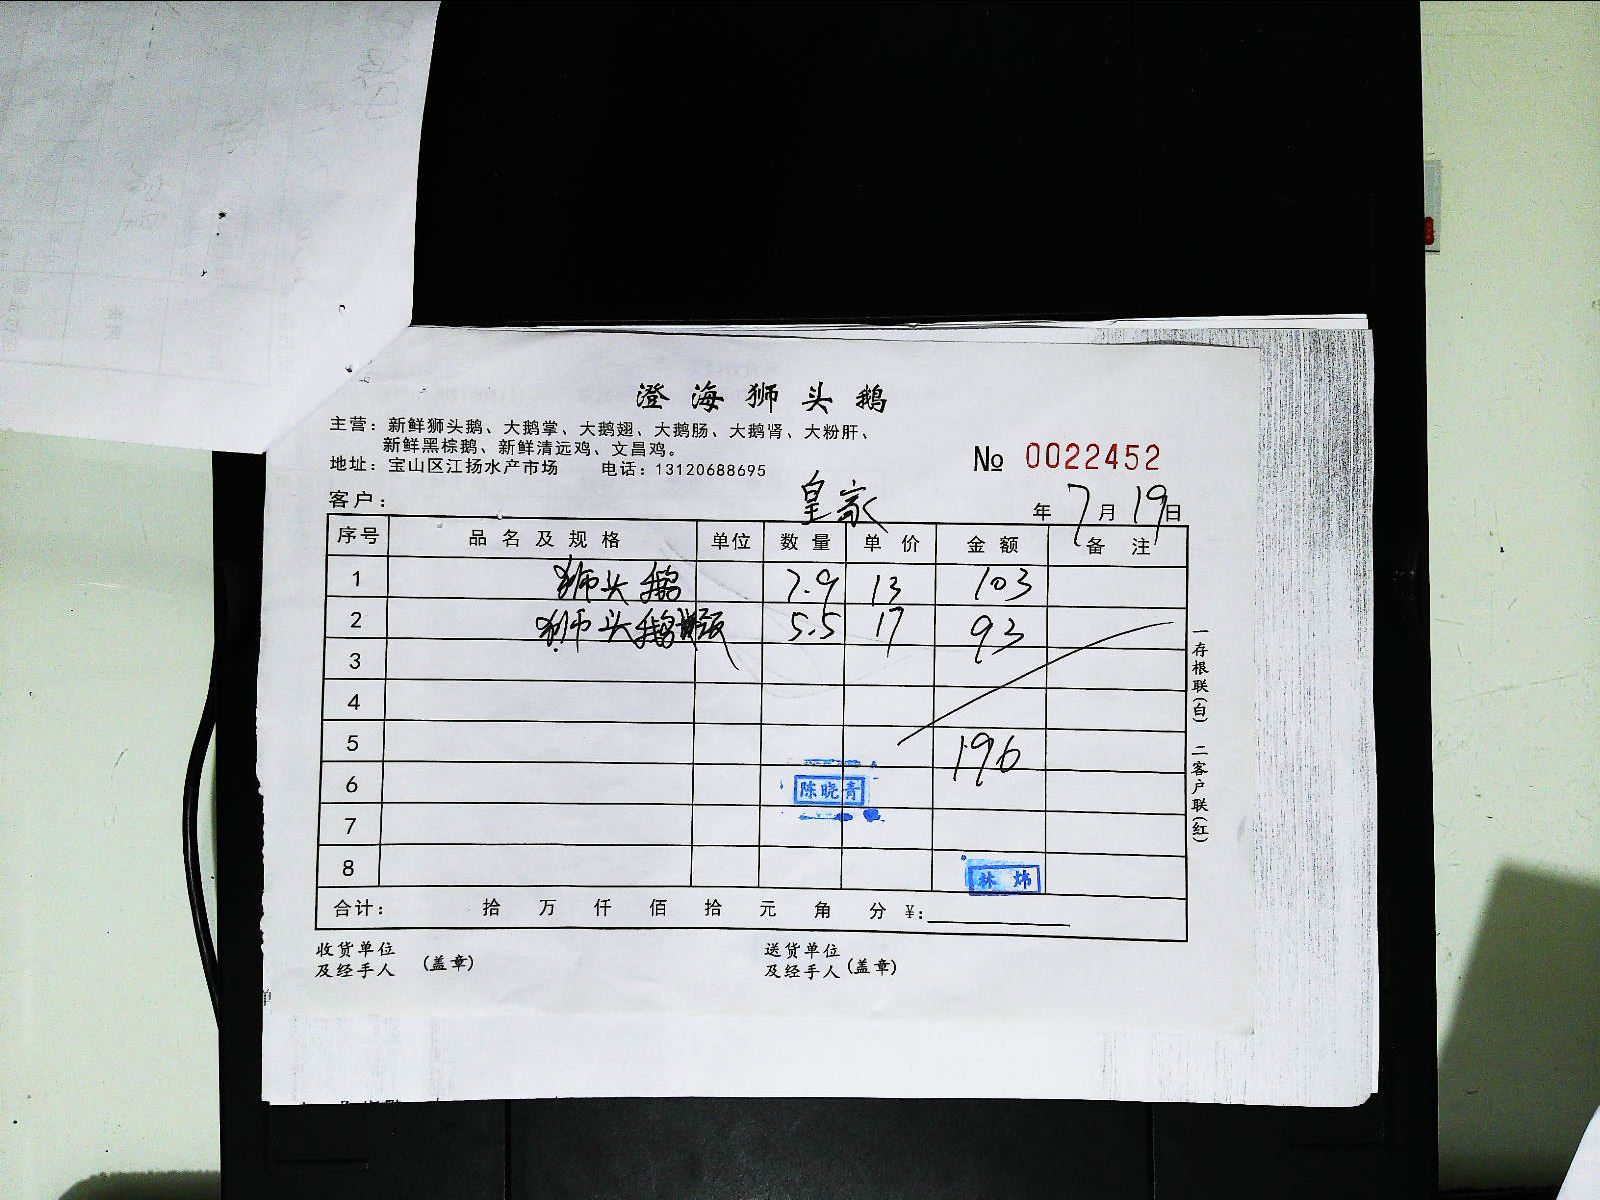 澄海狮头鹅
主营：新鲜狮头鹅、大鹅掌、大鹅翅、大鹅肠、大鹅肾、大粉肝、
新鲜黑棕鹅、新鲜清远鸡、文昌鸡。
地址：宝山区江扬水产市场 电话：13120688695
№ 0022452
客户： 皇家 年 7 月 19 日
序号 品名及规格 单位 数量 单价 金额 备注
1 狮头鹅 7.9 13 103
2 狮头鹅 5.5 17 93
3
4
5 196
6 陈晓青
7
8 林炜
合计： 拾 万 仟 佰 拾 元 角 分 ¥:
收货单位
及经手人 (盖章)
送货单位
及经手人 (盖章)
一存根联(白) 二客户联(红)